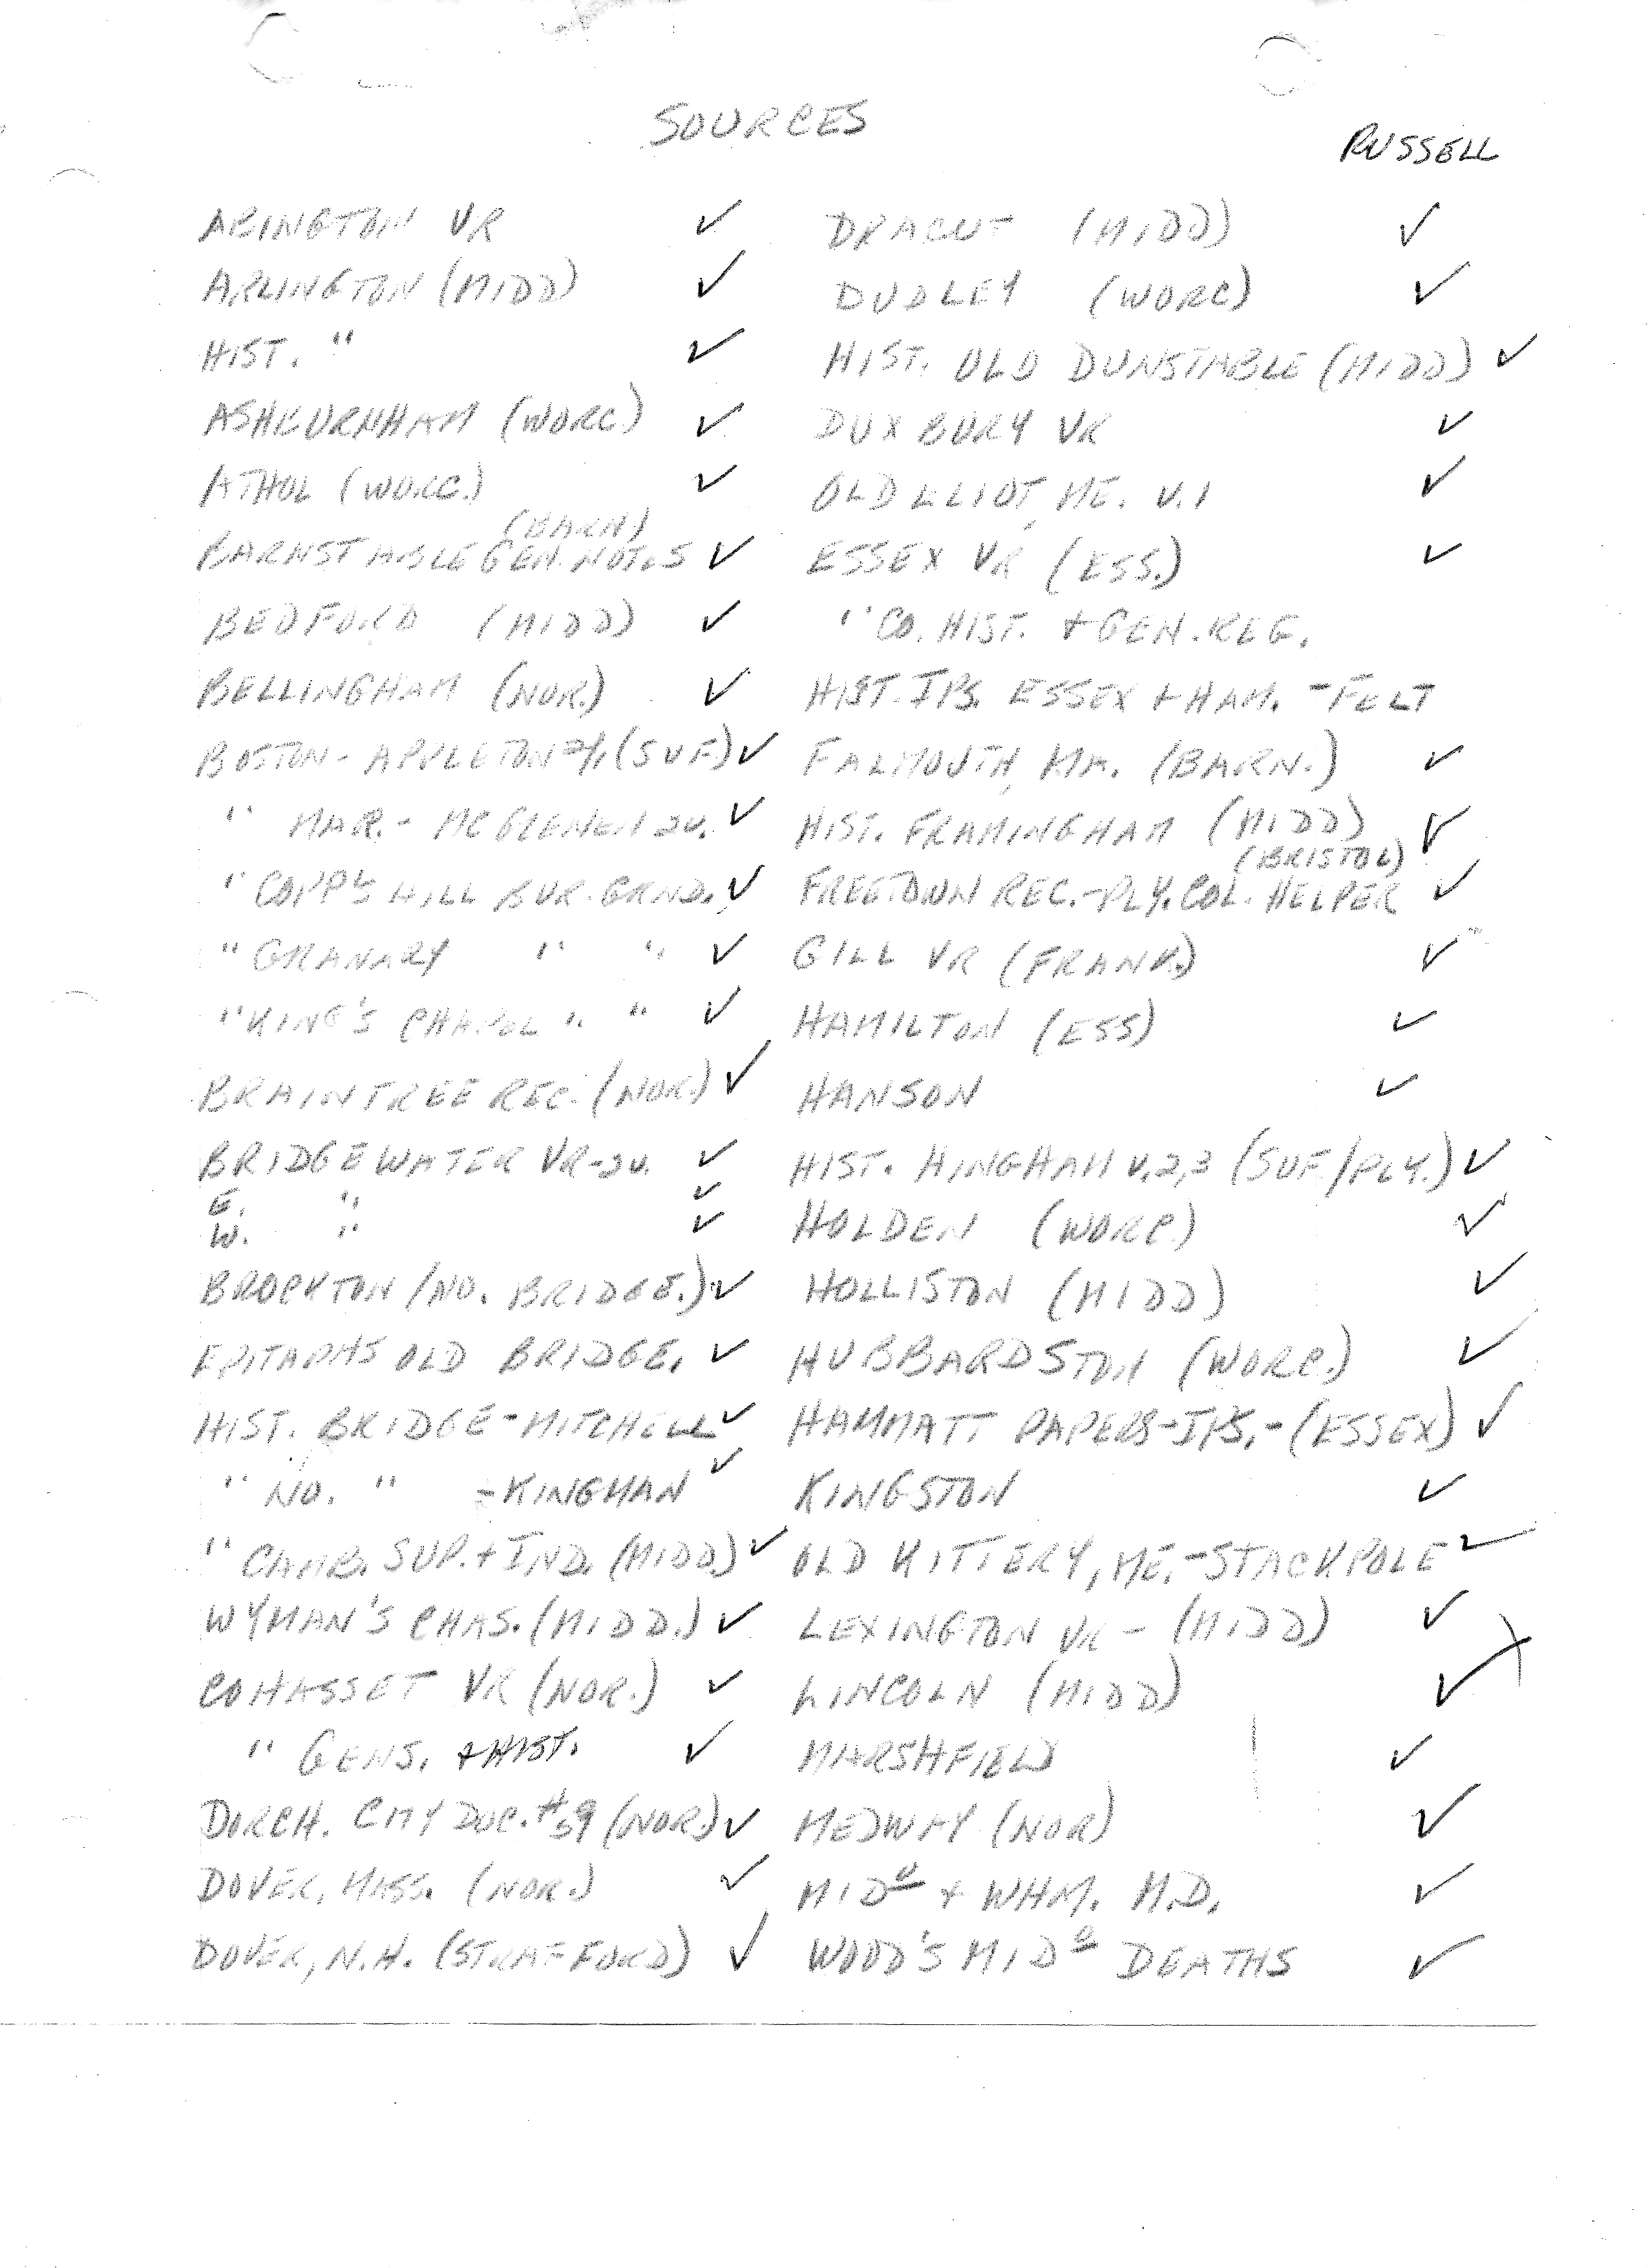 SOURCES
RUSSELL
ABINGTON VR ✓
ARLINGTON (MIDD) ✓
HIST. " ✓
ASHBURNHAM (WORC) ✓
ATHOL (WORC.) ✓
(BARN)
BARNSTABLE GEN. NOTES ✓
BEDFORD (MIDD) ✓
BELLINGHAM (NOR.) ✓
BOSTON - APPLETON (SUF) ✓
" MAR. - MCGLENEN 2V. ✓
" COPP'S HILL BUR. GRND. ✓
" GRANARY " " ✓
" KING'S CHAPEL " " ✓
BRAINTREE REC. (NOR.) ✓
BRIDGEWATER VR - 2V. ✓
E. " ✓
W. " ✓
BROCKTON (NO. BRIDGE.) ✓
EPITAPHS OLD BRIDGE. ✓
HIST. BRIDGE - MITCHELL ✓
" NO. " - KINGMAN ✓
" CAMB. SUP. + IND. (MIDD.) ✓
WYMAN'S CHAS. (MIDD.) ✓
COHASSET VR (NOR.) ✓
" GENS. + HIST. ✓
DORCH. CITY DOC. #59 (NOR.) ✓
DOVER, MASS. (NOR.) ✓
DOVER, N.H. (STRAFFORD) ✓
DRACUT (MIDD) ✓
DUDLEY (WORC) ✓
HIST. OLD DUNSTABLE (MIDD) ✓
DUXBURY VR ✓
OLD ELIOT, ME. V.1 ✓
ESSEX VR (ESS.) ✓
" CO. HIST. + GEN. REG.
HIST. IPS. ESSEX + HAM. - FELT
FALMOUTH, MA. (BARN.) ✓
HIST. FRAMINGHAM (MIDD) ✓
(BRISTOL)
FREETOWN REC. - PLY. COL. HELPER ✓
GILL VR (FRANK.) ✓
HAMILTON (ESS) ✓
HANSON ✓
HIST. HINGHAM V. 2, 3 (SUF./PLY.) ✓
HOLDEN (WORC.) ✓
HOLLISTON (MIDD) ✓
HUBBARDSTON (WORC.) ✓
HAMMATT PAPERS - IPS. - (ESSEX) ✓
KINGSTON ✓
OLD KITTERY, ME. - STACKPOLE ✓
LEXINGTON VR - (MIDD) ✓
LINCOLN (MIDD) ✓
MARSHFIELD ✓
MEDWAY (NOR) ✓
MID'O + WHM. M.D. ✓
WOOD'S MID'O DEATHS ✓